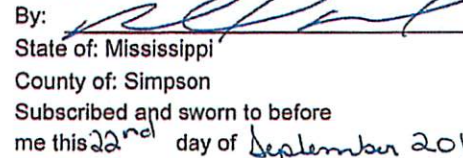 By:
State of: Mississippi
County of: Simpson
Subscribed and sworn to before
me this 22nd day of September 201